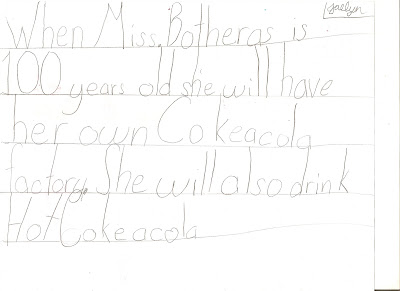 Kaelyn
When Miss. Botheras is
100 years old she will have
her own Cokeacola
factory. She will also drink
Hot Cokeacola